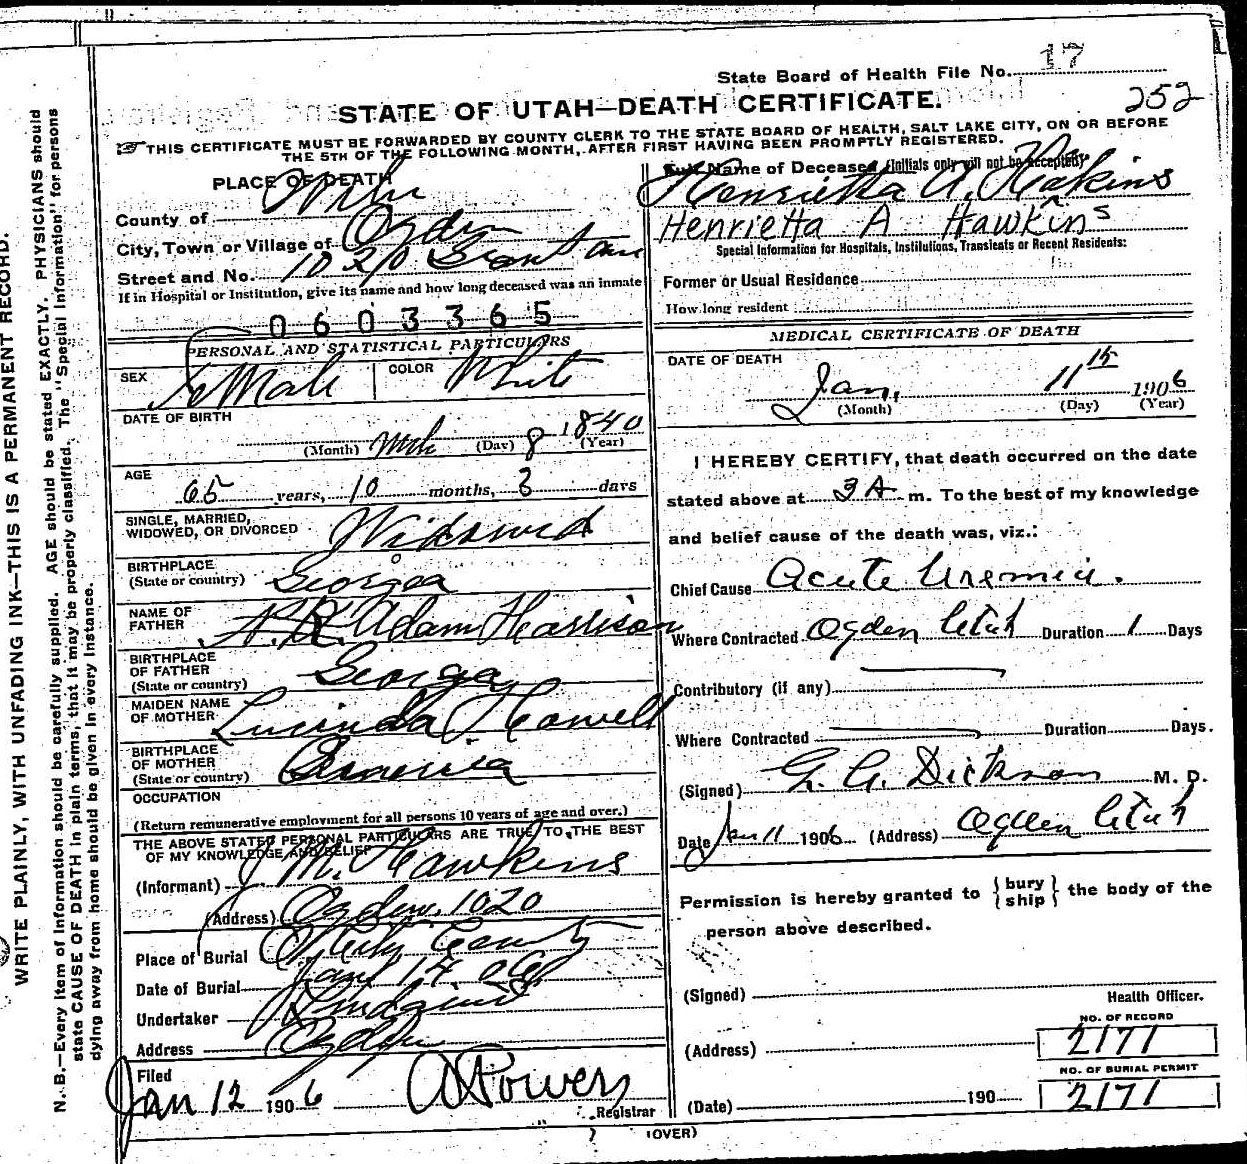 State Board of Health File No. 17
252
STATE OF UTAH—DEATH CERTIFICATE.
THIS CERTIFICATE MUST BE FORWARDED BY COUNTY CLERK TO THE STATE BOARD OF HEALTH, SALT LAKE CITY, ON OR BEFORE
THE 5TH OF THE FOLLOWING MONTH, AFTER FIRST HAVING BEEN PROMPTLY REGISTERED.
PLACE OF DEATH
County of
City, Town or Village of Ogden
Street and No. 1020
If in Hospital or Institution, give its name and how long deceased was an inmate
0603365
PERSONAL AND STATISTICAL PARTICULARS
SEX FeMale COLOR White
DATE OF BIRTH
(Month) Mch (Day) 8 1840 (Year)
AGE
65 years, 10 months, 3 days
SINGLE, MARRIED,
WIDOWED, OR DIVORCED Widowed
BIRTHPLACE
(State or country) Georgea
NAME OF
FATHER Adam Harrison
BIRTHPLACE
OF FATHER
(State or country) Georga
MAIDEN NAME
OF MOTHER Lucinda Howell
BIRTHPLACE
OF MOTHER
(State or country) America
OCCUPATION
(Return remunerative employment for all persons 10 years of age and over.)
THE ABOVE STATED PERSONAL PARTICULARS ARE TRUE TO THE BEST
OF MY KNOWLEDGE AND BELIEF
(Informant) J M. Hawkins
(Address) Ogden, 1020
Place of Burial
Date of Burial 14 06
Undertaker Lindquist
Address Ogden
Filed
Jan 12 1906 A Powers
Registrar
Full Name of Deceased (Initials only will not be accepted)
Henrietta A. Hakins
Henrietta A Hawkins
Special Information for Hospitals, Institutions, Transients or Recent Residents:
Former or Usual Residence
How long resident
MEDICAL CERTIFICATE OF DEATH
DATE OF DEATH
Jan. 11th 1906
(Month) (Day) (Year)
I HEREBY CERTIFY, that death occurred on the date
stated above at 3 A m. To the best of my knowledge
and belief cause of the death was, viz.:
Chief Cause Acute Uremia.
Where Contracted Ogden Utah Duration 1 Days
Contributory (if any)
Where Contracted Duration Days.
(Signed) Dickson M. D.
Date Jan 11 1906 (Address) Ogden Utah
Permission is hereby granted to {bury ship} the body of the
person above described.
(Signed)
Health Officer.
NO. OF RECORD
(Address) 2171
NO. OF BURIAL PERMIT
(Date) 190 2171
(OVER)
WRITE PLAINLY, WITH UNFADING INK—THIS IS A PERMANENT RECORD.
N. B.—Every item of information should be carefully supplied. AGE should be stated EXACTLY. PHYSICIANS should
state CAUSE OF DEATH in plain terms, that it may be properly classified. The "Special Information" for persons
dying away from home should be given in every instance.